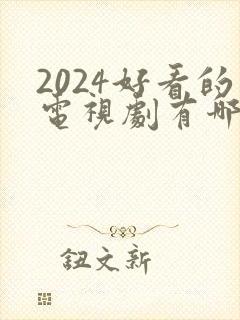 2024好看的
電視劇有哪
鈕文新